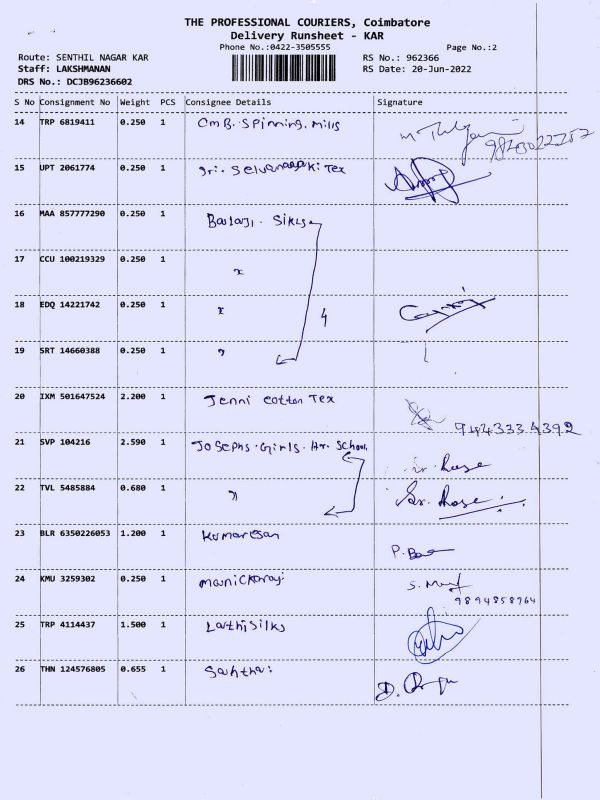 THE PROFESSIONAL COURIERS, Coimbatore
Delivery Runsheet - KAR
Phone No.:0422-3505555 Page No.:2
Route: SENTHIL NAGAR KAR RS No.: 962366
Staff: LAKSHMANAN RS Date: 20-Jun-2022
DRS No.: DCJB96236602
S No Consignment No Weight PCS Consignee Details Signature
14 TRP 6819411 0.250 1 Om B. Spinning. Mills
15 UPT 2061774 0.250 1 Sri. Tex
16 MAA 857777290 0.250 1 Balaji. Silks
17 CCU 100219329 0.250 1 "
18 EDQ 14221742 0.250 1 " 4
19 SRT 14660388 0.250 1 "
20 IXM 501647524 2.200 1 Jenni cotton Tex
9443334392
21 SVP 104216 2.590 1 Josephs. Girls. Hr. School
Sr. Rose
22 TVL 5485884 0.680 1 " Sr. Rose.
23 BLR 6350226053 1.200 1 Kumaresan
24 KMU 3259302 0.250 1 Manickaraj
9894858764
25 TRP 4114437 1.500 1 Lathi Silks
26 THN 124576805 0.655 1